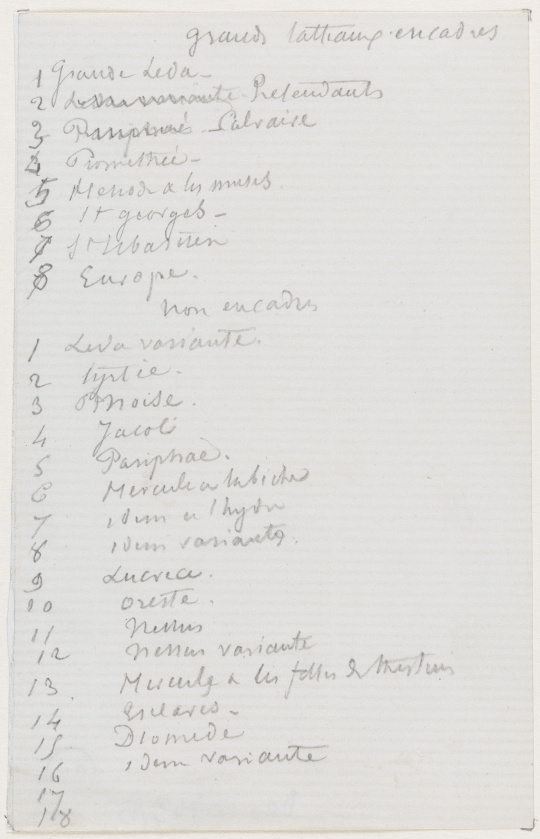 grands tableaux encadrés
1 Grande Leda -
2 Leda variante Pretendants
3 Pasiphaé Calvaire
4 Promethée -
5 Hesiode & les muses.
6 St georges -
7 St Sebastien
8 Europe.
non encadrés
1 Leda variante.
2 Tyrtée.
3 Moïse.
4 Jacob
5 Pasiphaë.
6 Hercule et la biche
7 idem et l'hydre
8 idem variante.
9 Lucrece.
10 oreste.
11 Nessus
12 Nessus variante
13. Hercule & les filles de Thestius
14 Esclaves -
15 Diomede
16 idem variante
17
18